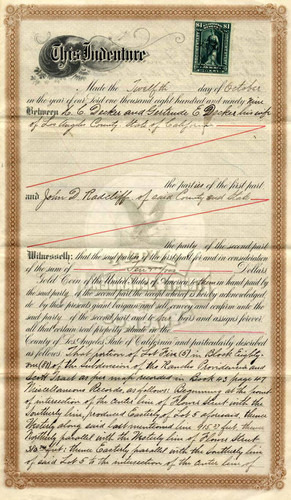 $1 $1
This Indenture
Made the Twelfth day of October
in the year of our Lord one thousand eight hundred and ninety nine
Between L. C. Decker and Gertrude E. Decker his wife
of Los Angeles County State of California
the parties of the first part
and John D. Radcliff of said County and State
the party of the second part
Witnesseth: that the said parties of the first part for and in consideration
of the sum of Ten Dollars
Gold Coin of the United States of America to them in hand paid by
the said party of the second part the receipt whereof is hereby acknowledged
do by these presents grant bargain and sell convey and confirm unto the
said party of the second part and to his heirs and assigns forever
all that certain real property situate in the
County of Los Angeles State of California and particularly described
as follows: That portion of Lot Five (5) in Block Eighty-
one (81) of the Subdivision of the Rancho Providencia and
Scott Tract as per map recorded in Book 43 page 47
Miscellaneous Records, as follows: Beginning at the point
of intersection of the center line of Flower Street with the
Southerly line, produced Easterly of Lot 5 aforesaid; thence
Westerly along said last mentioned line feet; thence
Northerly parallel with the Westerly line of Flower Street
feet; thence Easterly parallel with the Southerly line
of said Lot 5 to the intersection of the center line of